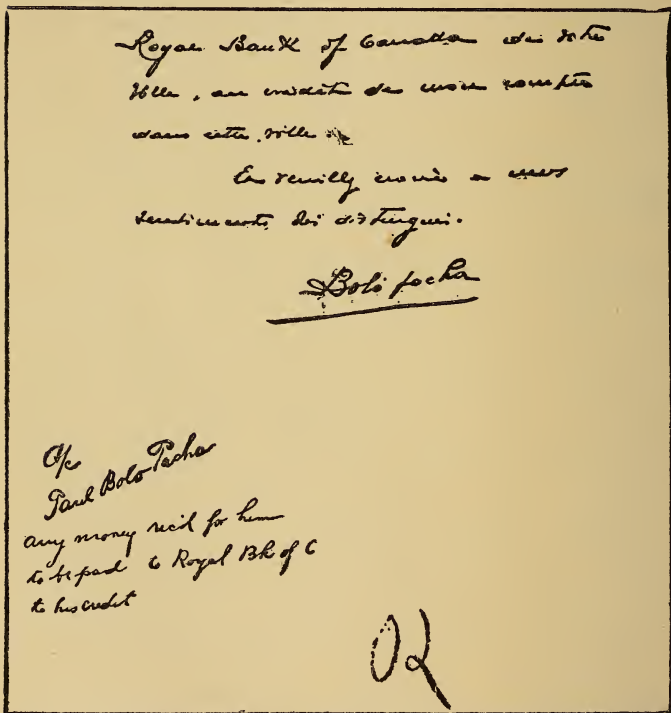 Royal Bank of Canada de votre
Ville, au crédit de mon compte
dans cette ville
En veuillez croire a mes
sentiments des distingués.
Bolo pacha
A/c
Paul Bolo Pacha
any money recd for him
to be paid to Royal Bk of C
to his credit
OK